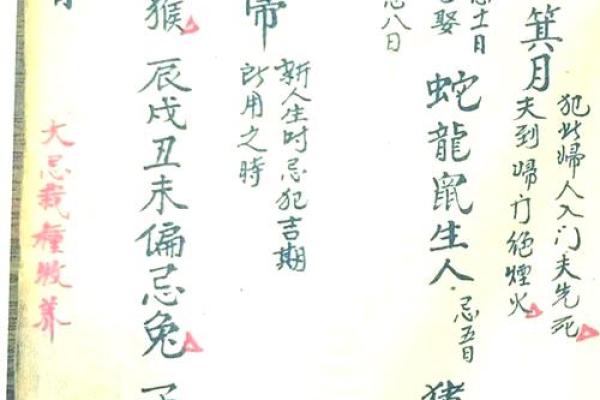 箕月
犯此婦人入门夫先死
夫到婦门絕煙火
忌十一日
娶
蛇龍鼠生人
忌五日
猪
忌八日
帝
新人生时忌犯吉期
所用之時
猴
辰戌丑未偏忌兔
大忌栽種牧养